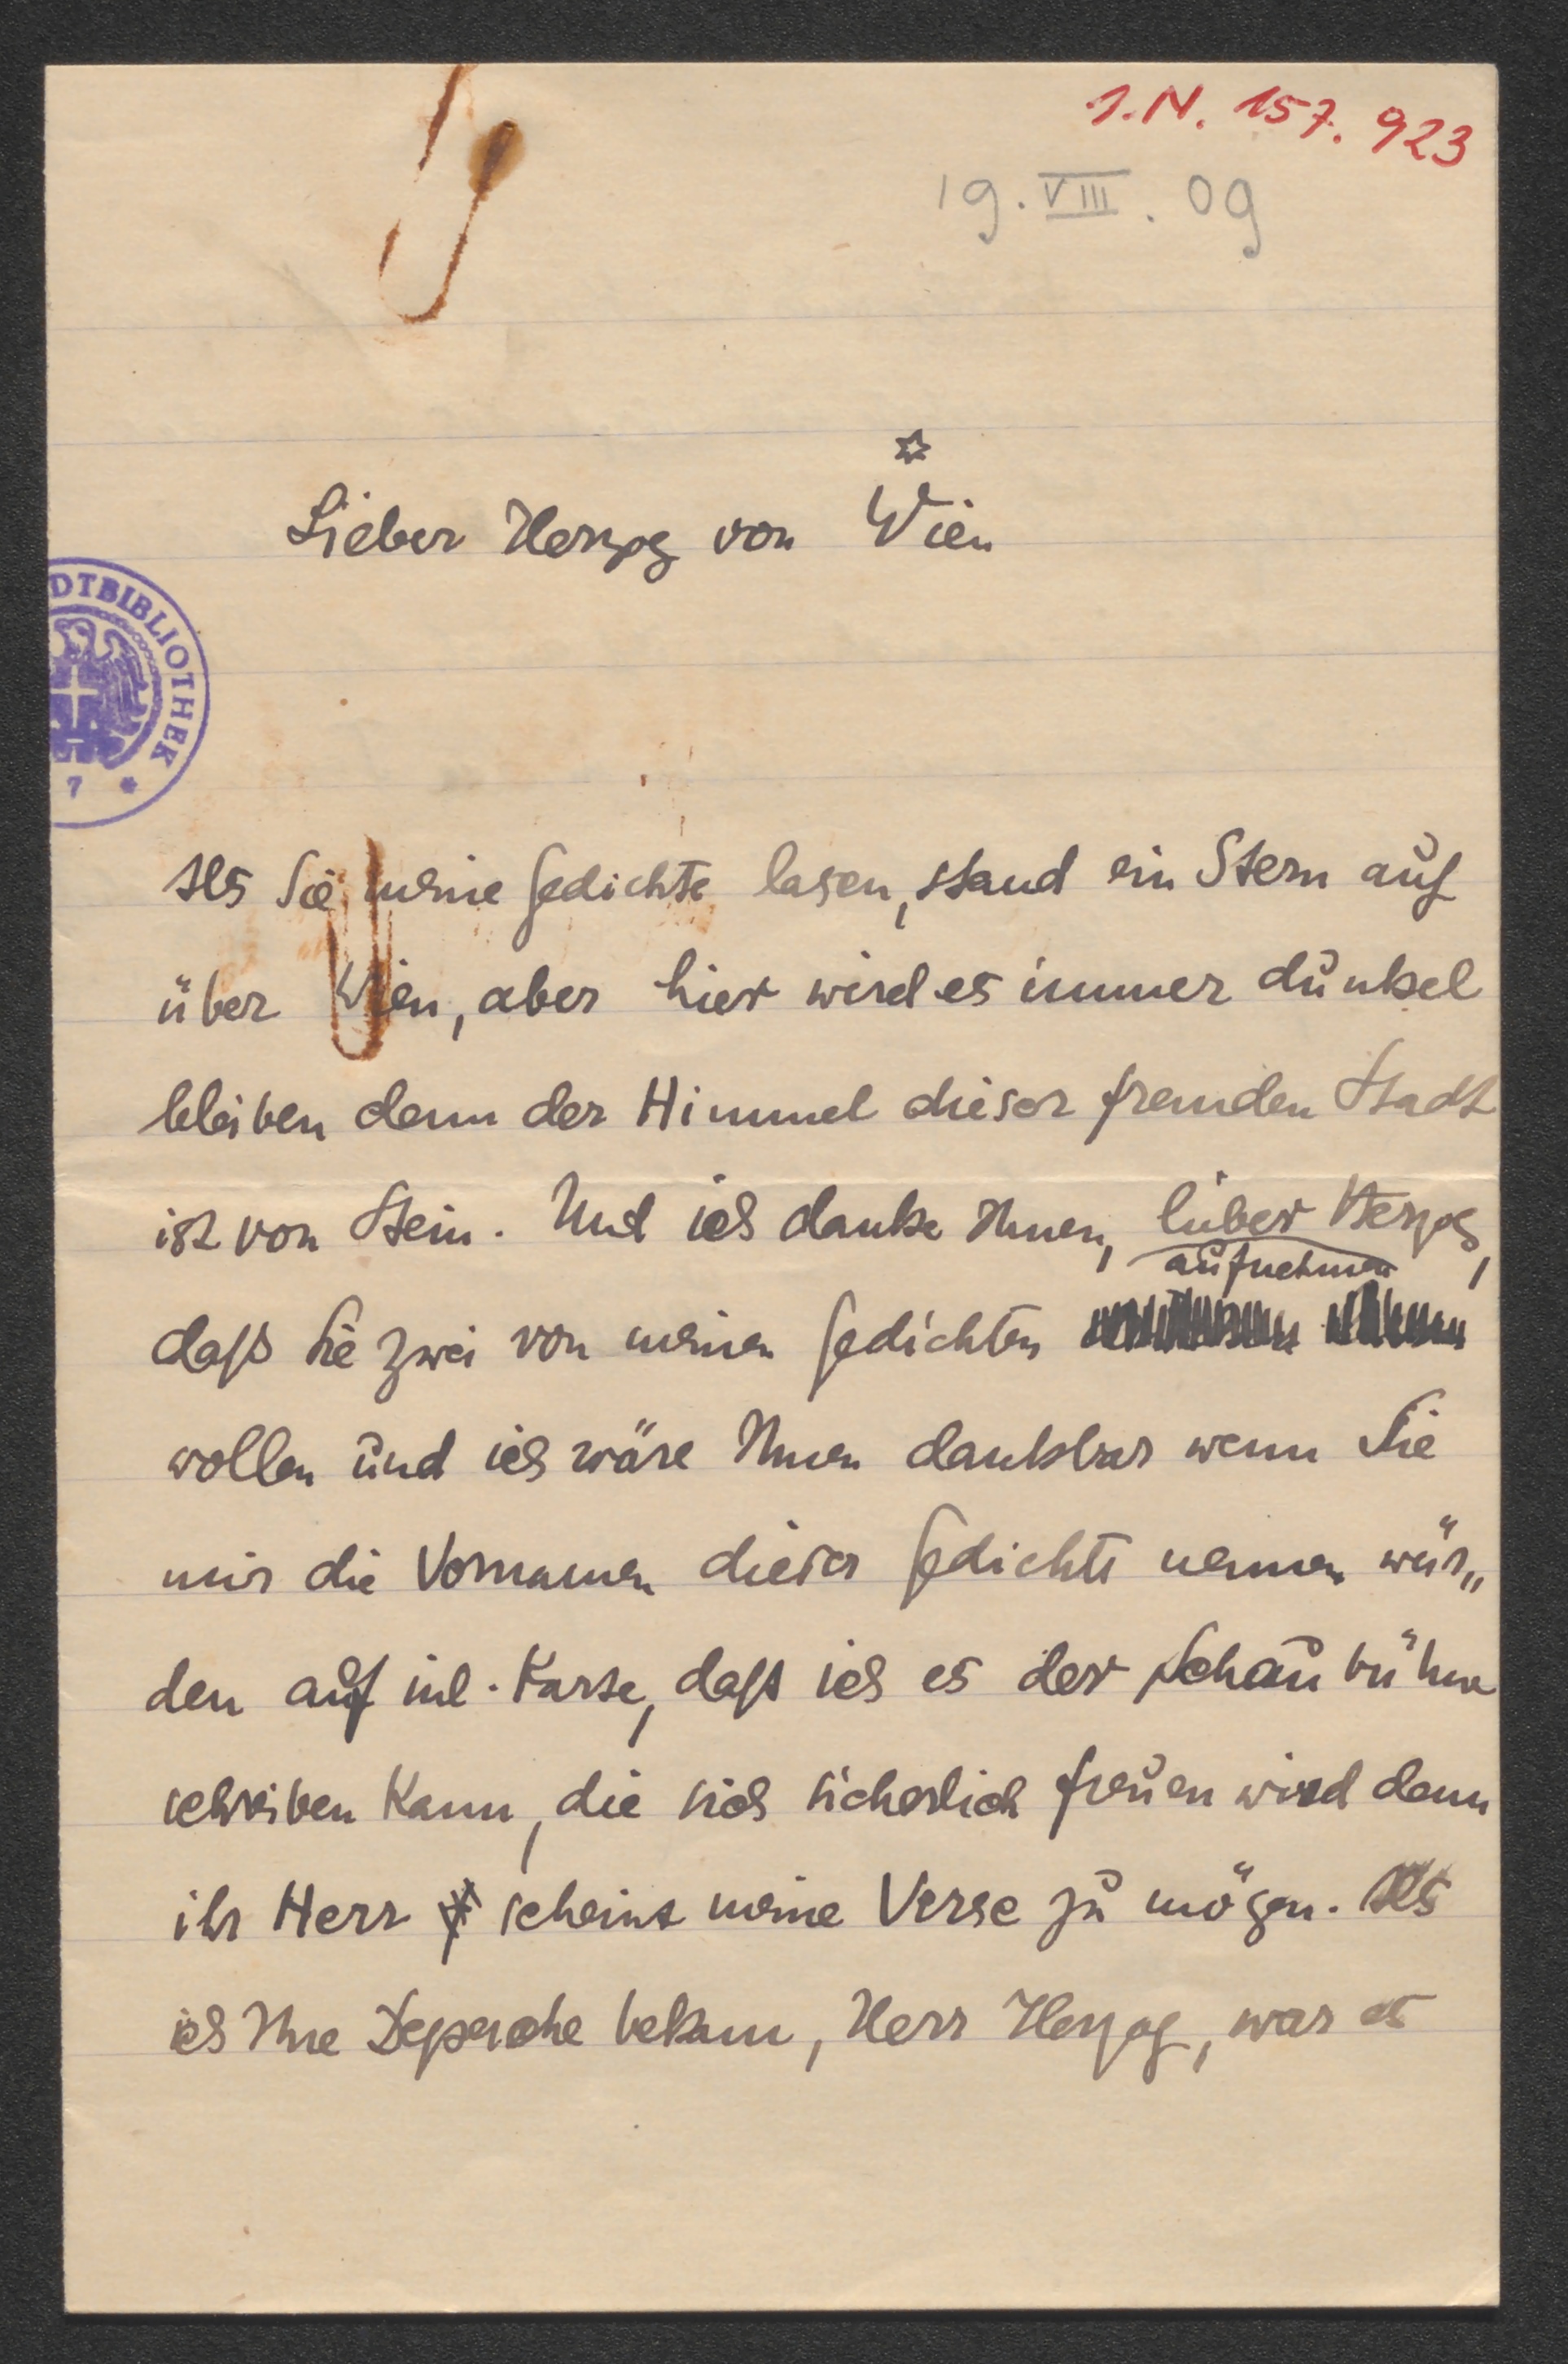 I.N. 157.923
19.VIII.09
Lieber Herzog von Wien
DTBIBLIOTHEK
7 *
Als Sie meine Gedichte lasen, stand ein Stern auf
über Wien, aber hier wird es immer dunkel
bleiben denn der Himmel dieser fremden Stadt
ist von Stein. Und ich danke Ihnen, lieber Herzog,
aufnehmen
daß Sie zwei von meinen Gedichten
wollen und ich wäre Ihnen dankbar wenn Sie
mir die Vornamen dieser Gedichte nennen wür„
den auf inl. Karte, daß ich es der Schaubühne
schreiben kann, die sich sicherlich freuen wird denn
ihr Herr scheint meine Verse zu mögen. Als
ich Ihre Depesche bekam, Herr Herzog, war es